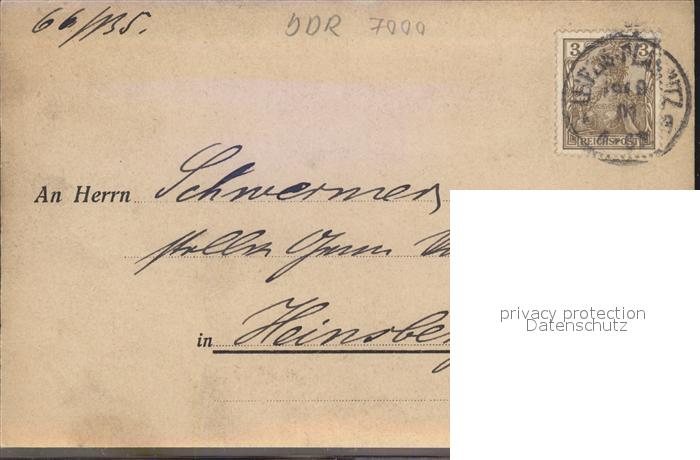 66/135.
DDR 7000
3 3
REICHSPOST
An Herrn Schwermer,
in Heinsber
privacy protection
Datenschutz